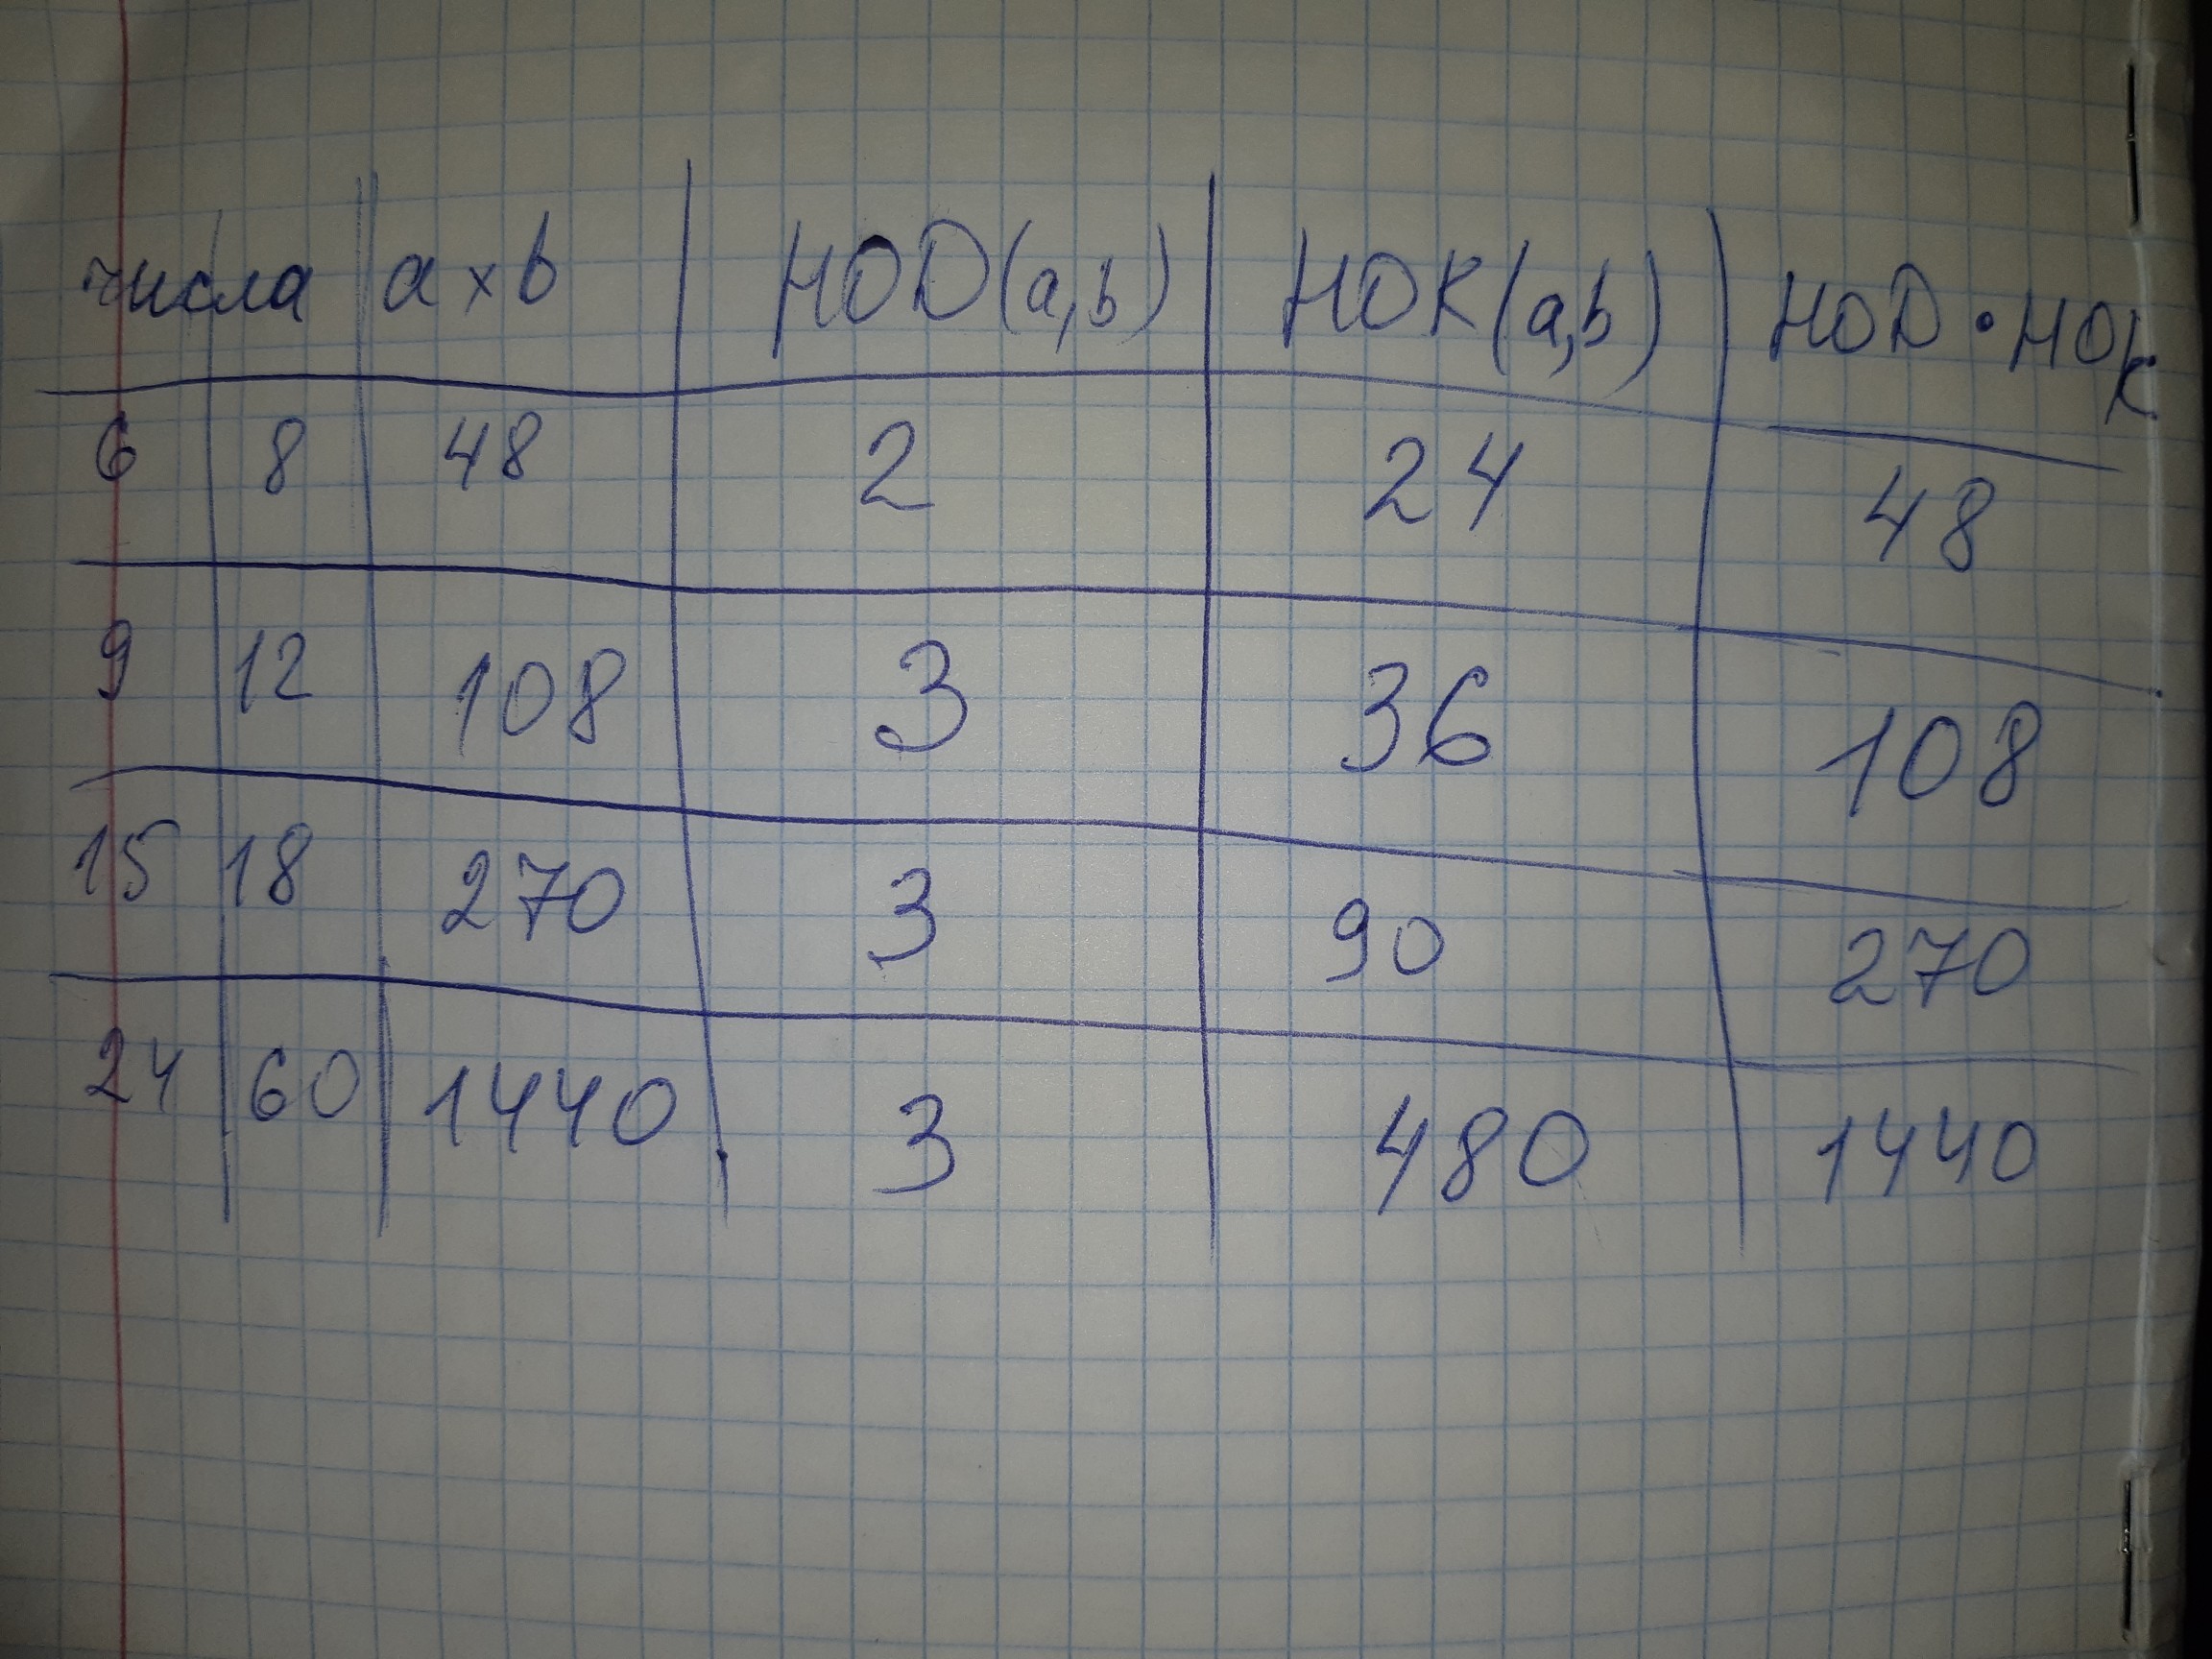 числа a × b НОД(a,b) НОК(a,b) НОД • НОК
6 8 48 2 24 48
9 12 108 3 36 108
15 18 270 3 90 270
24 60 1440 3 480 1440